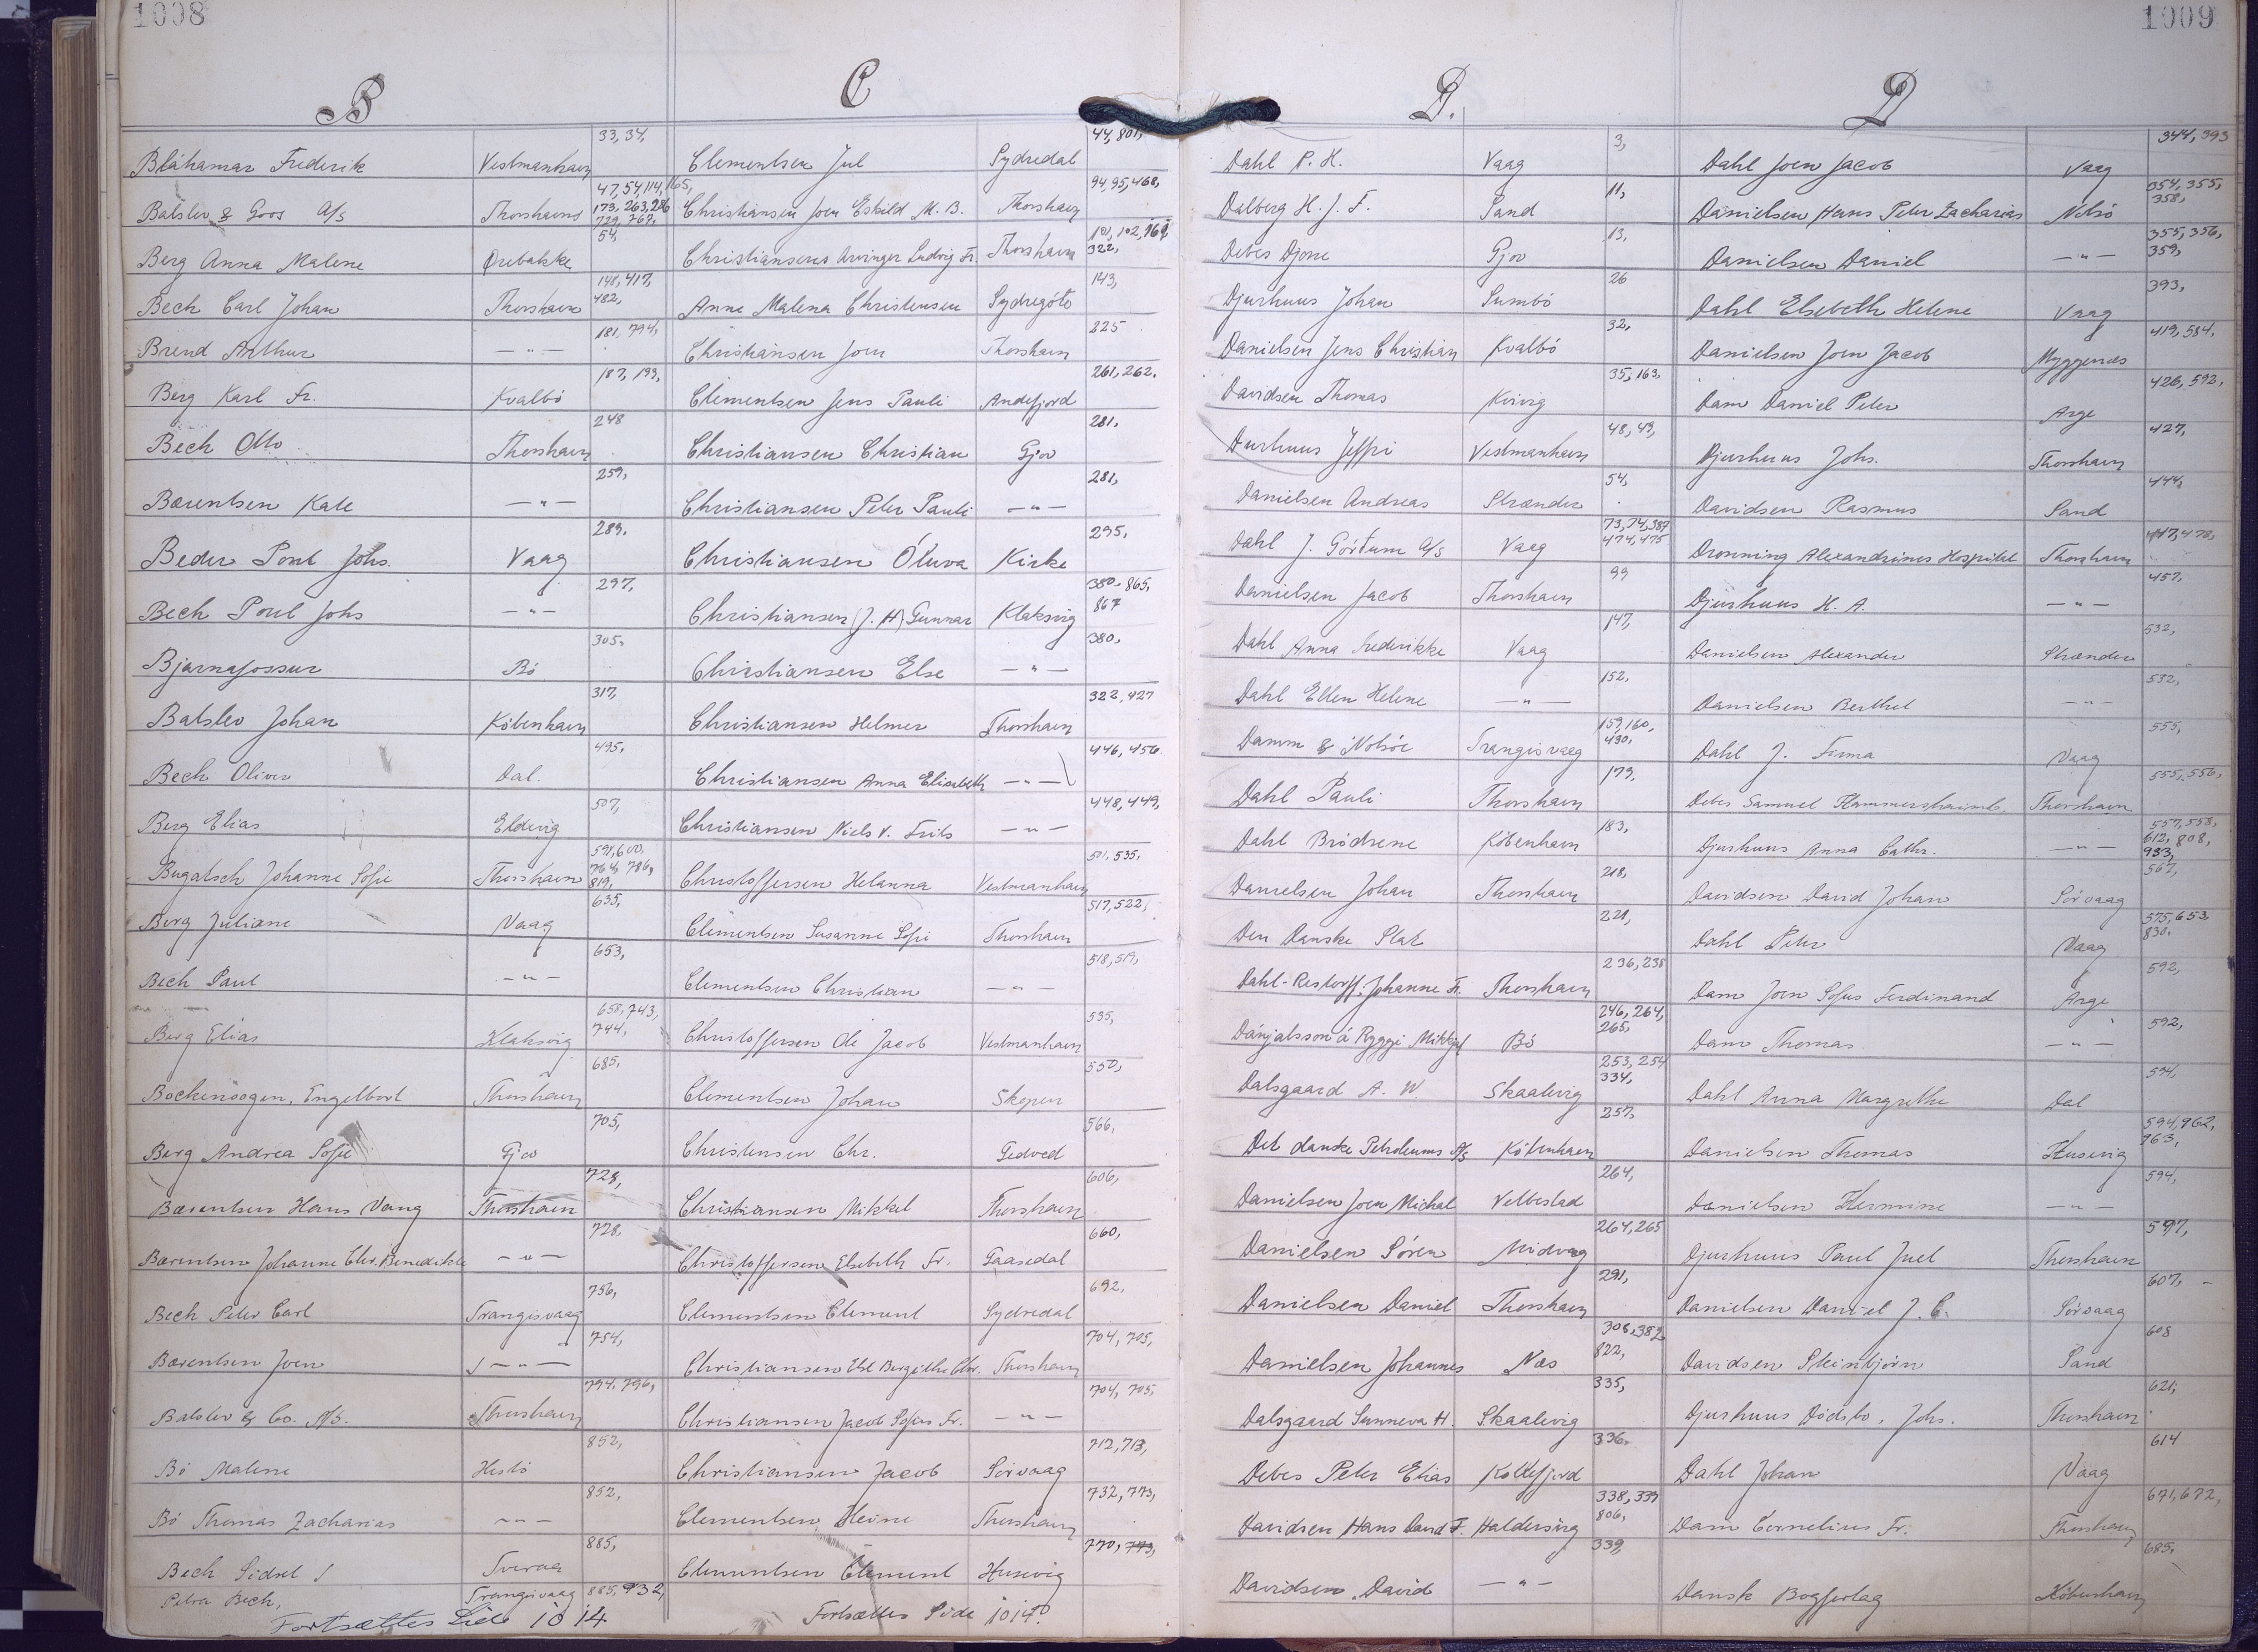 1008
B
Blåhamar Frederik Vestmanhavn 33, 34,
Balslev & Goos A/S Thorshavn 47, 54, 114, 165, 173, 263, 286 729, 767,
Berg Anna Malene Ørebakke 54,
Bech Carl Johan Thorshavn 148, 417, 482,
Brend Arthur —"— 181, 794,
Berg Karl Fr. Kvalbö 187, 199,
Bech Otto Thorshavn 248
Bærentsen Kate —"— 259,
Beder Poul Johs. Vaag 289.
Bech Poul Johs —"— 297,
Bjarnafossur Bö 305.
Balslev Johan Köbenhavn 317,
Bech Oliver Dal. 495.
Berg Elias Eldevig 507,
Bugatsch Johanne Sofie Thorshavn 591, 600, 764, 786, 819,
Berg Juliane Vaag 635,
Bech Paul —"— 653,
Berg Elias Klaksvig 658, 743, 744,
Bockenöogen, Engelbert Thorshavn 685.
Berg Andrea Sofie Gjov 705,
Bærentsen Hans Vang Thorshavn 728,
Bærentsen Johanne Chr. Benedikte —"— 728,
Bech Peter Carl Trangisvaag 756,
Bærentsen Joen —"— 754,
Balslev & Co. A/S. Thorshavn 794, 796,
Bö Malene Hestö 852,
Bö Thomas Zacharias —"— 852,
Bech Sidsel Tveraa 885,
Petra Bech, Trangisvaag 885, 932,
Fortsættes Side 1014
C
Clementsen Jul Sydredal 44, 801,
Christiansen Joen Eskild M. B. Thorshavn 94, 95, 468,
Christiansens Arvinger Ludvig Fr. Thorshavn 101, 102, 161, 322,
Anne Malena Christensen Sydregöte 143,
Christiansen Joen Thorshavn 225
Clementsen Jens Pauli Andefjord 261, 262.
Christiansen Christian Gjov 281.
Christiansen Peter Pauli —"— 281,
Christiansen Óluva Kirke 295.
Christiansen (J. H) Gunnar Klaksvig 380, 865, 867
Christiansen Else —"— 380,
Christiansen Helmer Thorshavn 322, 427
Christiansen Anna Elisabeth —"— 446, 456
Christiansen Niels V. Frits —"— 448, 449,
Christoffersen Helanna Vestmanhavn 501, 535,
Clementsen Susanne Sofie Thorshavn 517, 522,
Clementsen Christian —"— 518, 519,
Christoffersen Ole Jacob Vestmanhavn 535,
Clementsen Johan Skopen 550,
Christensen Chr. Gedved 566,
Christiansen Mikkel Thorshavn 606,
Christoffersen Elsebeth Fr. Gaasedal 660,
Clementsen Clement Sydredal 692,
Christiansen Else Bergithe Chr. Thorshavn 704, 705,
Christiansen Jacob Sofus Fr. —"— 704, 705,
Christiansen Jacob Sörvaag 712, 713,
Clementsen Heine Thorshavn 732, 773,
Clementsen Clement Husevig 770, 773,
Fortsættes Side 1014
1009
D.
Dahl P. H. Vaag 3,
Dalberg H. J. F. Sand 11,
Debes Djone Gjov 13,
Djurhuus Johan Sumbö 26
Danielsen Jens Christian Kvalbö 32,
Davidsen Thomas Kvivig 35, 163,
Durhuus Jeffri Vestmanhavn 48, 49,
Danielsen Andreas Strænder 54,
Dahl J. Górtum A/S Vaag 73, 74, 387 474, 475
Danielsen Jacob Thorshavn 99
Dahl Anna Frederikke Vaag 147,
Dahl Ellen Helene —"— 152,
Damm & Nolsöe Trangisvaag 159, 160, 490,
Dahl Pauli Thorshavn 179,
Dahl Brödrene Köbenhavn 183,
Danielsen Johan Thorshavn 218,
Den Danske Stat 221,
Dahl-Restorff, Johanne Fr. Thorshavn 236, 238
Dánjalsson á Ryggi Mikkjal Bö 246, 264, 265,
Dalsgaard A. W. Skaalevig 253, 254 334,
Det danske Petroleums A/S Köbenhavn 257,
Danielsen Joen Michal Velbestad 264,
Danielsen Sören Midvaag 264, 265
Danielsen Daniel Thorshavn 291,
Danielsen Johannes Næs 308, 382 822,
Dalsgaard Sunneva H. Skaalevig 335,
Debes Peter Elias Kollefjord 336.
Davidsen Hans David F. Haldersvig 338, 339 806,
Davidsen David —"— 339,
D
Dahl Joen Jacob Vaag 344, 393
Danielsen Hans Peter Zacharias Nolsö 354, 355, 358,
Danielsen Daniel —"— 355, 356, 359,
Dahl Elsebeth Helene Vaag 393,
Danielsen Joen Jacob Myggenæs 419, 584,
Dam Daniel Peter Arge 426, 592,
Djurhuus Johs. Thorshavn 427,
Davidsen Rasmus Sand 444,
Dronning Alexandrines Hospital Thorshavn 447, 478,
Djurhuus H. A. —"— 457,
Danielsen Alexander Strænder 532,
Danielsen Berthel —"— 532,
Dahl J. Firma Vaag 555,
Debes Samuel Hammershaimb Thorshavn 555, 556,
Djurhuus Anna Cathr. —"— 557, 558, 612, 808, 933,
Davidsen David Johan Sörvaag 567,
Dahl Peter Vaag 575, 653, 830.
Dam Joen Sofus Ferdinand Arge 592,
Dam Thomas —"— 592,
Dahl Anna Margrethe Dal 594,
Danielsen Thomas Husevig 594, 962, 963,
Danielsen Hermine —"— 594,
Djurhuus Paul Juel Thorshavn 597,
Danielsen Daniel J. C. Sörvaag 607,
Davidsen Steinbjörn Sand 608
Djurhuus Dödsbo, Johs. Thorshavn 621,
Dahl Johan Vaag 614
Dam Cornelius Fr. Thorshavn 671, 672,
Dansk Bogforlag Köbenhavn 685,